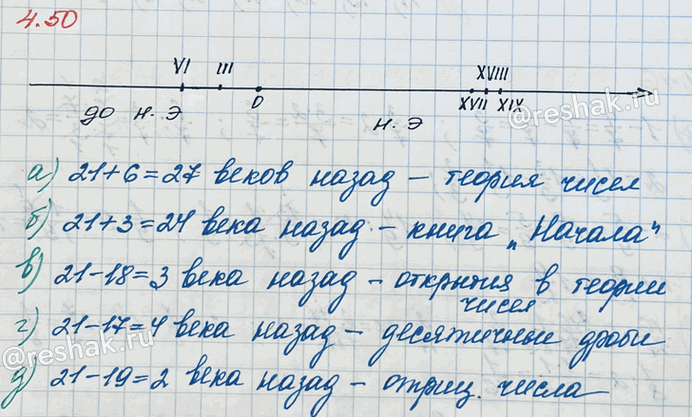 4.50
VI III XVIII
0 XVII XIX
до н. э н. э
а) 21+6=27 веков назад – теория чисел
б) 21+3=24 века назад – книга „Начала"
в) 21-18=3 века назад – открытия в теории
чисел
г) 21-17=4 века назад – десятичные дроби
д) 21-19=2 века назад – отриц. числа
@reshak.ru
@reshak.ru